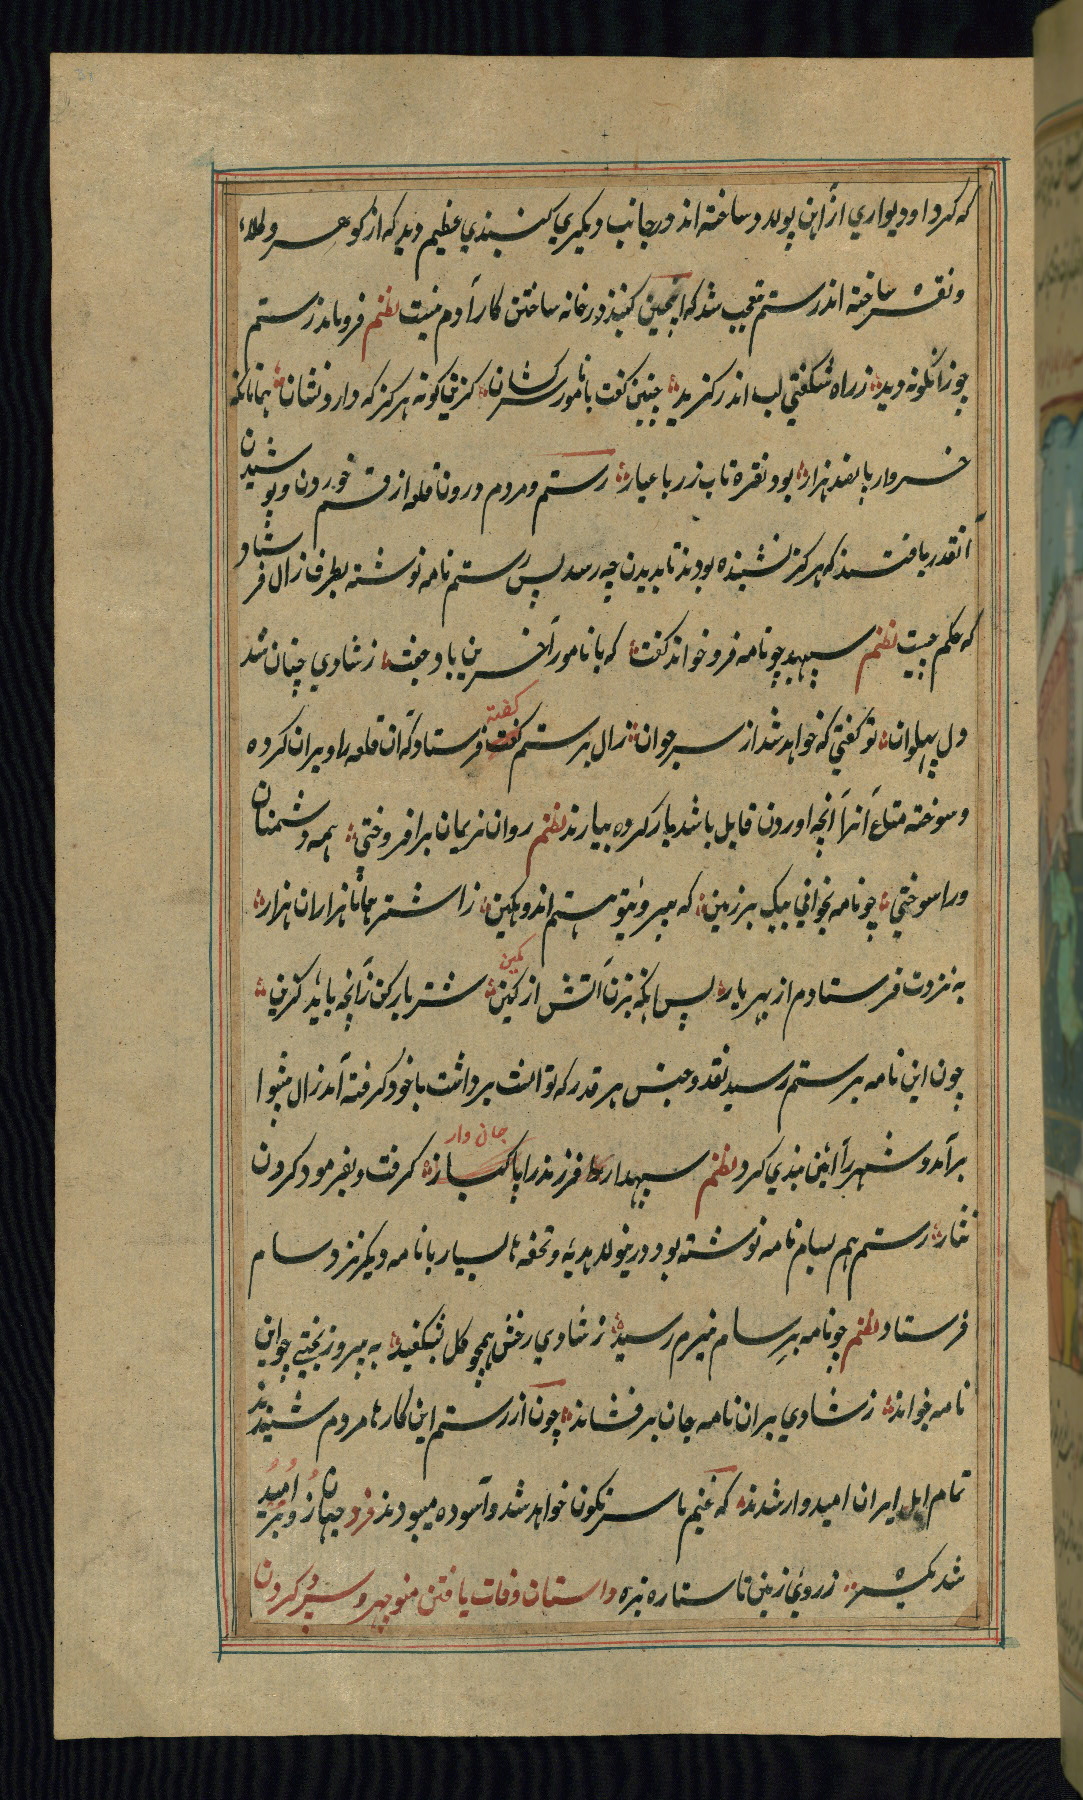 که گرد او دیواری از آهن پولد و ساخته اند در جانب دیگری گنبذی عظیم دید که از گوهر و طلاء
و نقره ساخته اند رستم متعجب شد که اینچنین گنبذ و رخانه ساختن کار آدم نیست نظم فروماند رستم
چو زانگونه دید زراه شگفتی لب اندر گزید چنین گفت با نامور سرکشان کزینگونه هرگز که دارد نشان همانا که
خروار پانصد هزار بود نقره ناب زر با عیار رستم و مردم درون قلعه از قسم خوردن و پوشیدن
آنقدر یافتند که هرگز نشنیده بودند تا بدیدن چه رسد پس رستم نامه نوشته بطرف زال فرستاد
که حکم چیست نظم سپهبد چو نامه فرو خواند گفت که با نامور آفرین باد جفت ز شادی چنان شد
دل پهلوان تو گفتی که خواهد شد از سر جوان زال برستم گفته فرستاد که آن قلعه را ویران کرده
و سوخته متاع آنرا آنچه اوردن قابل باشد بار کرده بیارند نظم روان نریمان برافروختی همه دشمنان
ورا سوختی چو نامه بخوانی بیک برزمین که بی روی تو هستم اندوهگین ز اشتر همانا هزاران هزار
به نزدت فرستادم از بهر بار پس آنگه بزن آتش از کین شتر بار کن زآنچه باید گزین
چون این نامه برستم رسید نقد و جنس هر قدر که توانست برداشت با خود گرفته آمد زال پیشوا
برآمد و شهر را آئین بندی کرد نظم سپهدار فرزند را جان وار گرفت و بفرمود کردن
نثار رستم هم بسام نامه نوشته بود هدیه و تحفه ها بسیار با نامه دیگر نزد سام
فرستاد نظم چو نامه بر سام نیرم رسید ز شادی رخش همچو گل بشگفید به پیروز بختی چو این
نامه خواند ز شادی بران نامه جان برفشاند چون از رستم این کارها مردم شنیدند
تمام اهل ایران امیدوار شدند که غنیم ما سرنگون خواهد شد و آسوده میبودند فرد جهان زو پر امید
شد یکسره ز روی زمین تا ستاره بره داستان وفات یافتن منوچهر و سپرد کردن